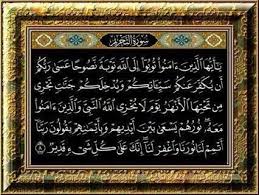 سورة التحريم
يَٰٓأَيُّهَا ٱلَّذِينَ ءَامَنُوا۟ تُوبُوٓا۟ إِلَى ٱللَّهِ تَوْبَةً نَّصُوحًا عَسَىٰ رَبُّكُمْ
أَن يُكَفِّرَ عَنكُمْ سَيِّـَٔاتِكُمْ وَيُدْخِلَكُمْ جَنَّٰتٍ تَجْرِى
مِن تَحْتِهَا ٱلْأَنْهَٰرُ يَوْمَ لَا يُخْزِى ٱللَّهُ ٱلنَّبِىَّ وَٱلَّذِينَ ءَامَنُوا۟
مَعَهُۥ نُورُهُمْ يَسْعَىٰ بَيْنَ أَيْدِيهِمْ وَبِأَيْمَٰنِهِمْ يَقُولُونَ رَبَّنَآ
أَتْمِمْ لَنَا نُورَنَا وَٱغْفِرْ لَنَآ إِنَّكَ عَلَىٰ كُلِّ شَىْءٍ قَدِيرٌ ٨